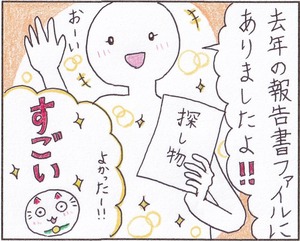 去年の報告書ファイルに
ありましたよ!!
おーい
探し物
よかったー!!
すごい